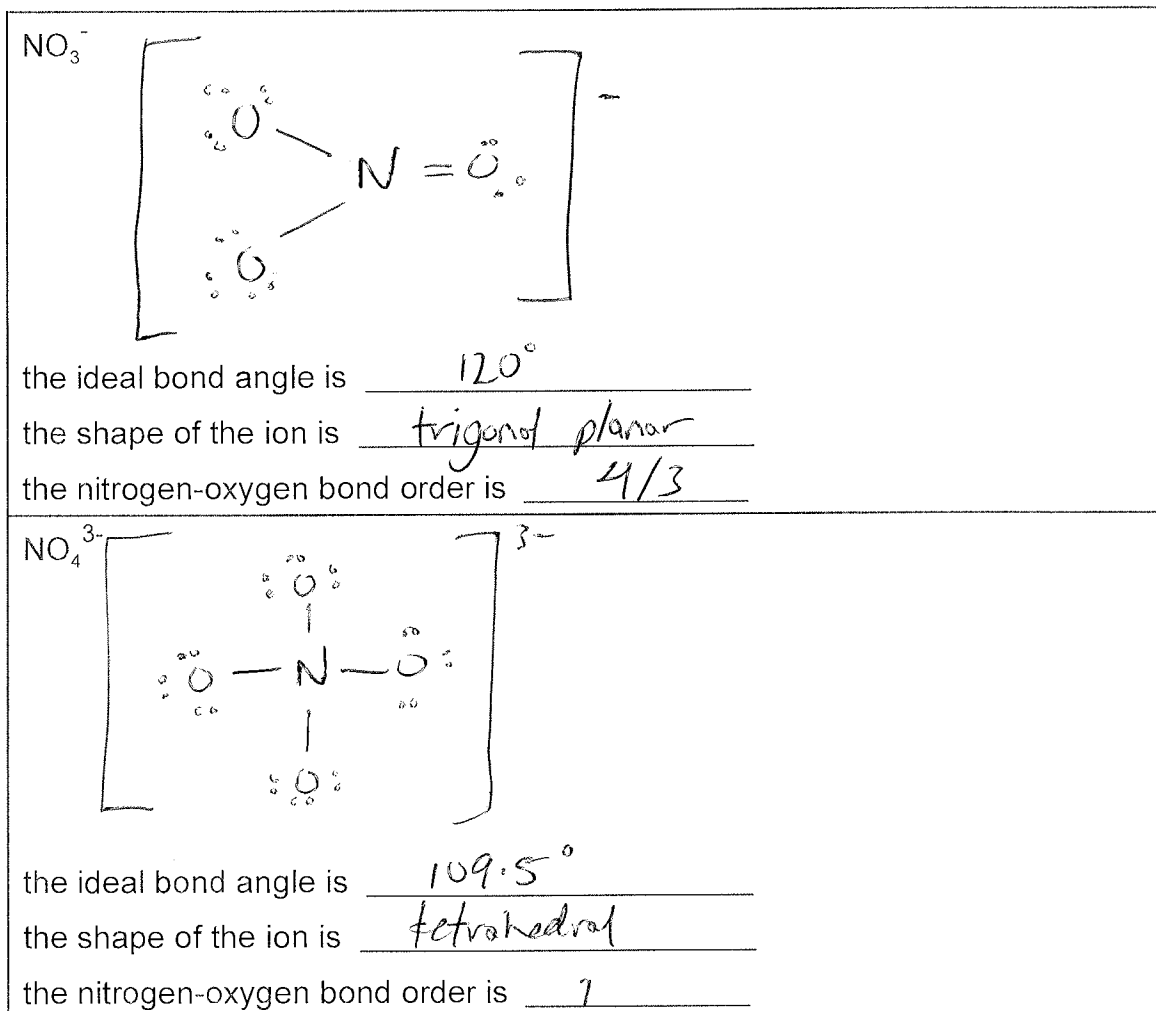 NO₃⁻
O
N = O
O
-
the ideal bond angle is 120°
the shape of the ion is trigonal planar
the nitrogen-oxygen bond order is 4/3
NO₄³⁻
3-
O
O — N — O
O
the ideal bond angle is 109.5°
the shape of the ion is tetrahedral
the nitrogen-oxygen bond order is 1